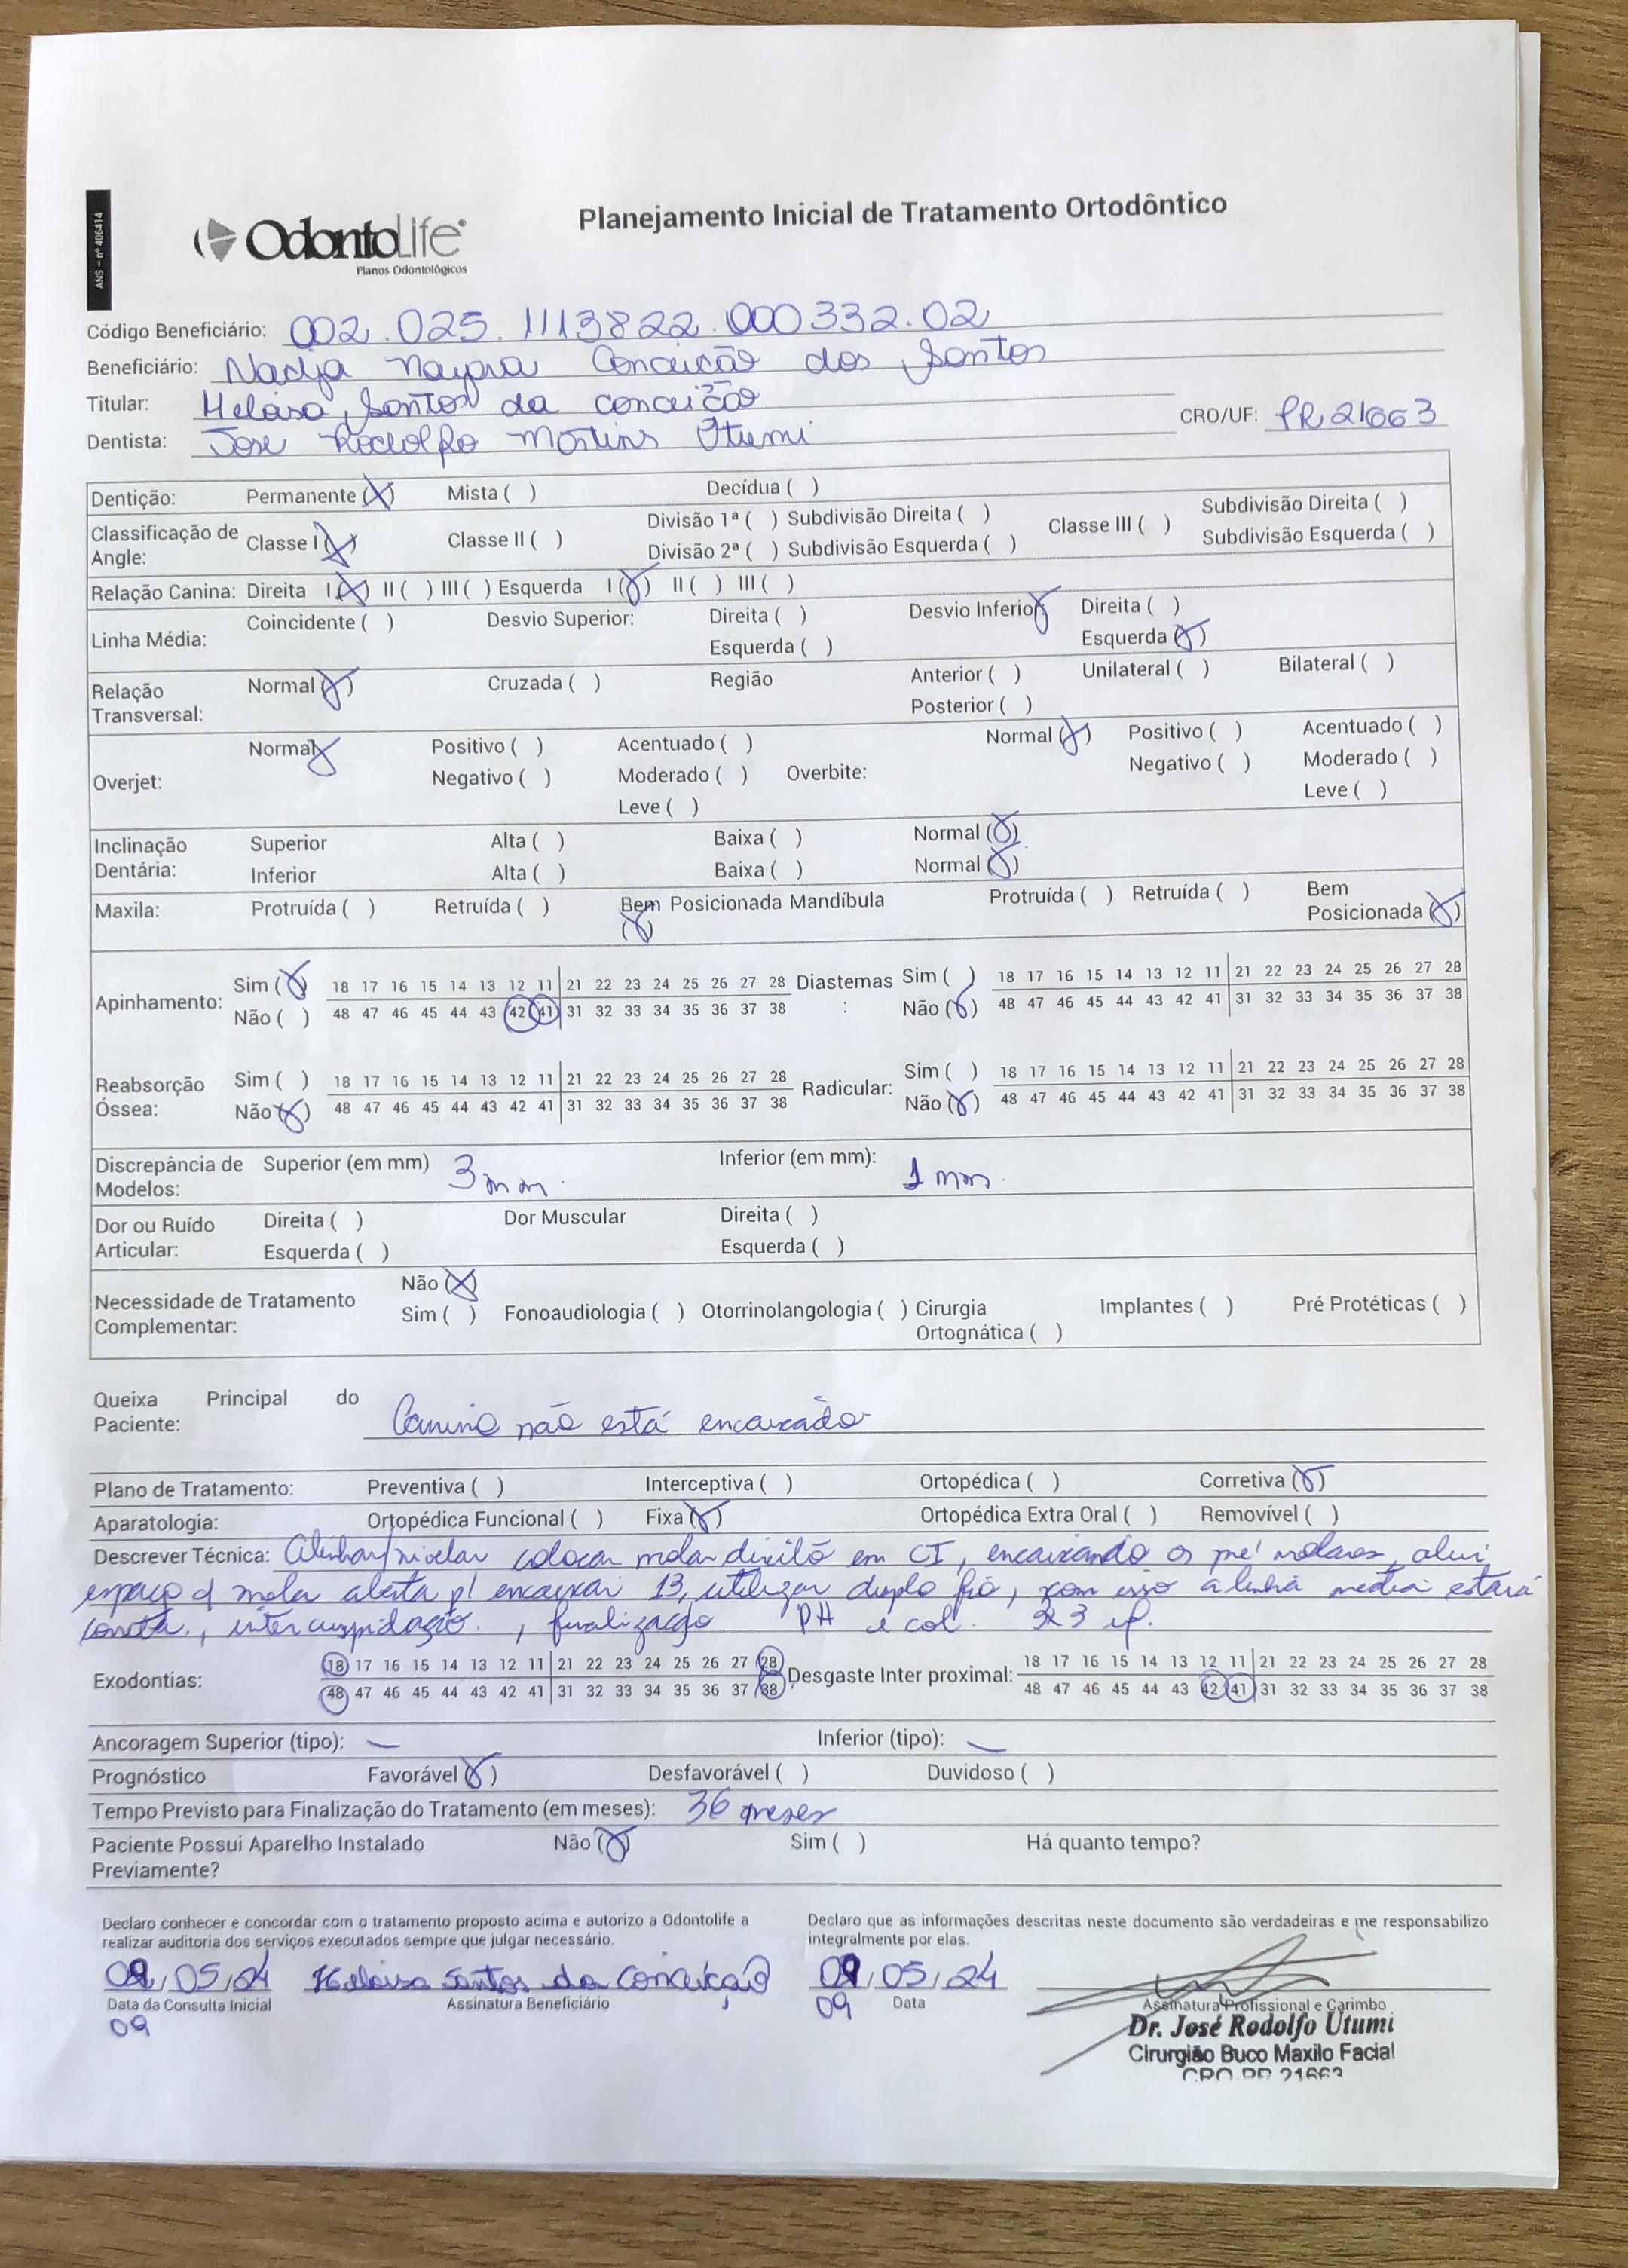 ANS – nº 406414
OdontoLife®
Planos Odontológicos
Planejamento Inicial de Tratamento Ortodôntico
Código Beneficiário: 002.025.1113822.000332.02
Beneficiário: Nadja Nayara Conceição dos Santos
Titular: Heloisa Santos da Conceição
Dentista: Jose Rodolfo Martins Utumi CRO/UF: PR 21663
Dentição: Permanente (X) Mista ( ) Decídua ( )
Classificação de Angle: Classe I (X) Classe II ( ) Divisão 1ª ( ) Subdivisão Direita ( ) Classe III ( ) Subdivisão Direita ( )
Divisão 2ª ( ) Subdivisão Esquerda ( ) Subdivisão Esquerda ( )
Relação Canina: Direita I (X) II ( ) III ( ) Esquerda I (X) II ( ) III ( )
Linha Média: Coincidente ( ) Desvio Superior: Direita ( ) Desvio Inferior X Direita ( )
Esquerda ( ) Esquerda (X)
Relação Transversal: Normal (X) Cruzada ( ) Região Anterior ( ) Unilateral ( ) Bilateral ( )
Posterior ( )
Overjet: Normal X Positivo ( ) Acentuado ( ) Overbite: Normal (X) Positivo ( ) Acentuado ( )
Negativo ( ) Moderado ( ) Negativo ( ) Moderado ( )
Leve ( ) Leve ( )
Inclinação Dentária: Superior Alta ( ) Baixa ( ) Normal (X)
Inferior Alta ( ) Baixa ( ) Normal (X)
Maxila: Protruída ( ) Retruída ( ) Bem Posicionada (X) Mandíbula Protruída ( ) Retruída ( ) Bem Posicionada (X)
Apinhamento: Sim (X) 18 17 16 15 14 13 12 11 21 22 23 24 25 26 27 28 Diastemas: Sim ( ) 18 17 16 15 14 13 12 11 21 22 23 24 25 26 27 28
Não ( ) 48 47 46 45 44 43 42 41 31 32 33 34 35 36 37 38 Não (X) 48 47 46 45 44 43 42 41 31 32 33 34 35 36 37 38
Reabsorção Óssea: Sim ( ) 18 17 16 15 14 13 12 11 21 22 23 24 25 26 27 28 Radicular: Sim ( ) 18 17 16 15 14 13 12 11 21 22 23 24 25 26 27 28
Não (X) 48 47 46 45 44 43 42 41 31 32 33 34 35 36 37 38 Não (X) 48 47 46 45 44 43 42 41 31 32 33 34 35 36 37 38
Discrepância de Modelos: Superior (em mm) 3 mm. Inferior (em mm): 1 mm.
Dor ou Ruído Articular: Direita ( ) Dor Muscular Direita ( )
Esquerda ( ) Esquerda ( )
Necessidade de Tratamento Complementar: Não (X)
Sim ( ) Fonoaudiologia ( ) Otorrinolangologia ( ) Cirurgia Ortognática ( ) Implantes ( ) Pré Protéticas ( )
Queixa Principal do Paciente: Canino não está encaixado
Plano de Tratamento: Preventiva ( ) Interceptiva ( ) Ortopédica ( ) Corretiva (X)
Aparatologia: Ortopédica Funcional ( ) Fixa (X) Ortopédica Extra Oral ( ) Removível ( )
Descrever Técnica: Alinhar/nivelar colocar molar direito em CI, encaixando os pré molares, abrir
espaço c/ mola aberta p/ encaixar 13, utilizar duplo fio, com isso a linha media estará
correta., intercuspidação., finalização PH e col. 3x3 if.
Exodontias: 18 17 16 15 14 13 12 11 21 22 23 24 25 26 27 28 Desgaste Inter proximal: 18 17 16 15 14 13 12 11 21 22 23 24 25 26 27 28
48 47 46 45 44 43 42 41 31 32 33 34 35 36 37 38 48 47 46 45 44 43 42 41 31 32 33 34 35 36 37 38
Ancoragem Superior (tipo): — Inferior (tipo): —
Prognóstico Favorável (X) Desfavorável ( ) Duvidoso ( )
Tempo Previsto para Finalização do Tratamento (em meses): 36 meses
Paciente Possui Aparelho Instalado Previamente? Não (X) Sim ( ) Há quanto tempo?
Declaro conhecer e concordar com o tratamento proposto acima e autorizo a Odontolife a
realizar auditoria dos serviços executados sempre que julgar necessário.
Declaro que as informações descritas neste documento são verdadeiras e me responsabilizo
integralmente por elas.
09/05/24 Heloisa Santos da Conceição 09/05/24
Data da Consulta Inicial Assinatura Beneficiário Data Assinatura Profissional e Carimbo
09 09
Dr. José Rodolfo Utumi
Cirurgião Buco Maxilo Facial
CRO PR 21663